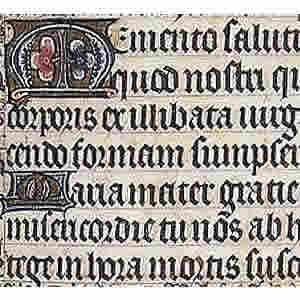 Memento saluti
quod nostri qu
corporis ex illibata uirg
cendo formam sumpseri
Maria mater gratie
misericordie tu nos ab h
tege in hora mortis susc